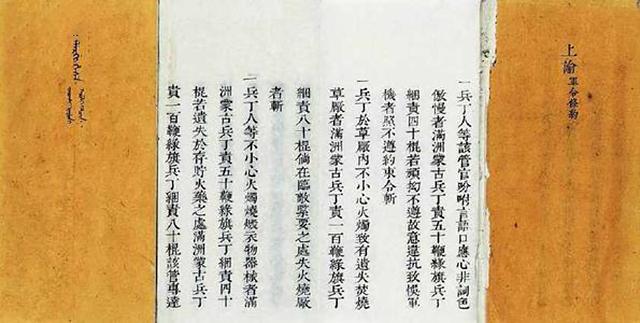 上諭軍令條約
一兵丁人等該管官吩咐言語口應心非詞色
傲慢者滿洲蒙古兵丁責五十鞭綠旗兵丁
綑責四十棍若頑抝不遵故意違抗致悞軍
機者照不遵約束令斬
一兵丁於草厰內不小心火燭致有遺失焚燒
草厰者滿洲蒙古兵丁責一百鞭綠旗兵丁
綑責八十棍倘在臨敵緊要之處失火燒厰
者斬
一兵丁人等不小心火燭燒燬衣物器械者滿
洲蒙古兵丁責五十鞭綠旗兵丁綑責四十
棍若遺失於存貯火藥之處滿洲蒙古兵丁
責一百鞭綠旗兵丁綑責八十棍該管專達